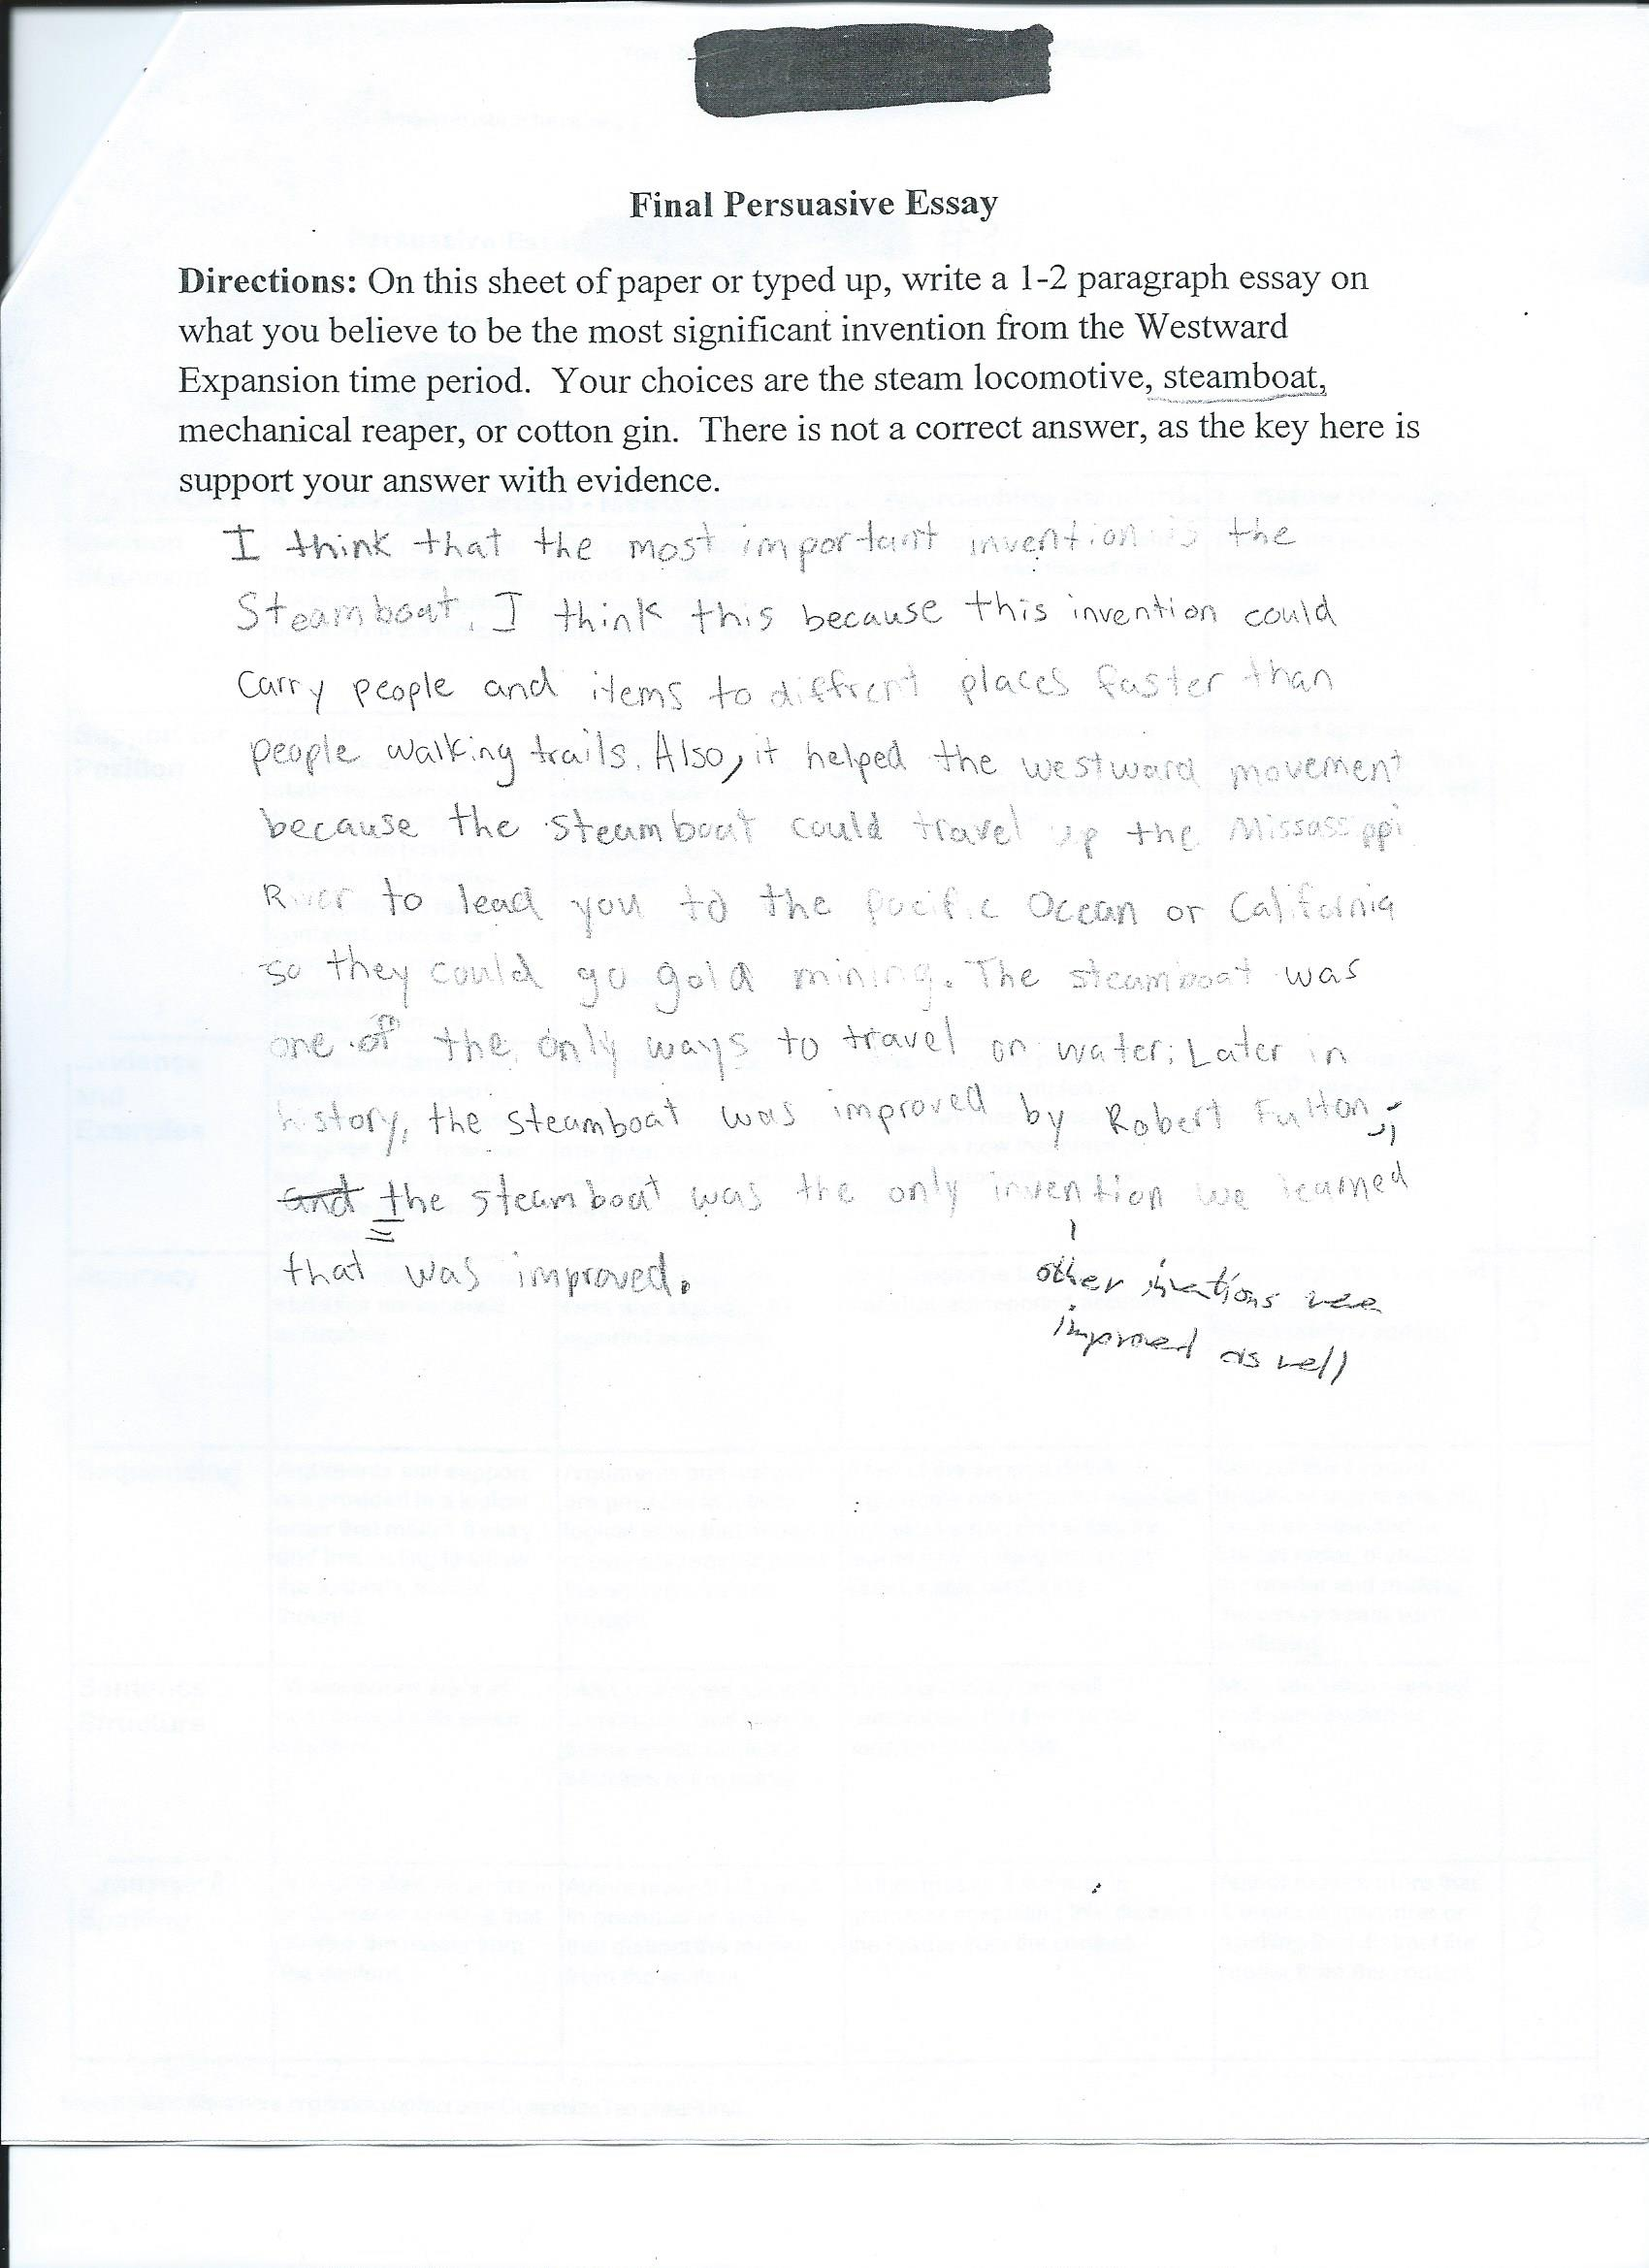 Final Persuasive Essay
Directions: On this sheet of paper or typed up, write a 1-2 paragraph essay on
what you believe to be the most significant invention from the Westward
Expansion time period.  Your choices are the steam locomotive, steamboat,
mechanical reaper, or cotton gin.  There is not a correct answer, as the key here is
support your answer with evidence.
I think that the most important invention is the
Steamboat. I think this because this invention could
Carry people and items to diffrent places faster than
people walking trails. Also, it helped the westward movement
because the steamboat could travel up the Missassippi
River to lead you to the pacific Ocean or California
so they could go gold mining. The steamboat was
one of the only ways to travel on water; Later in
history, the steamboat was improved by Robert Fulton;
and the steamboat was the only invention we learned
that was improved.
other invations were
improved as well